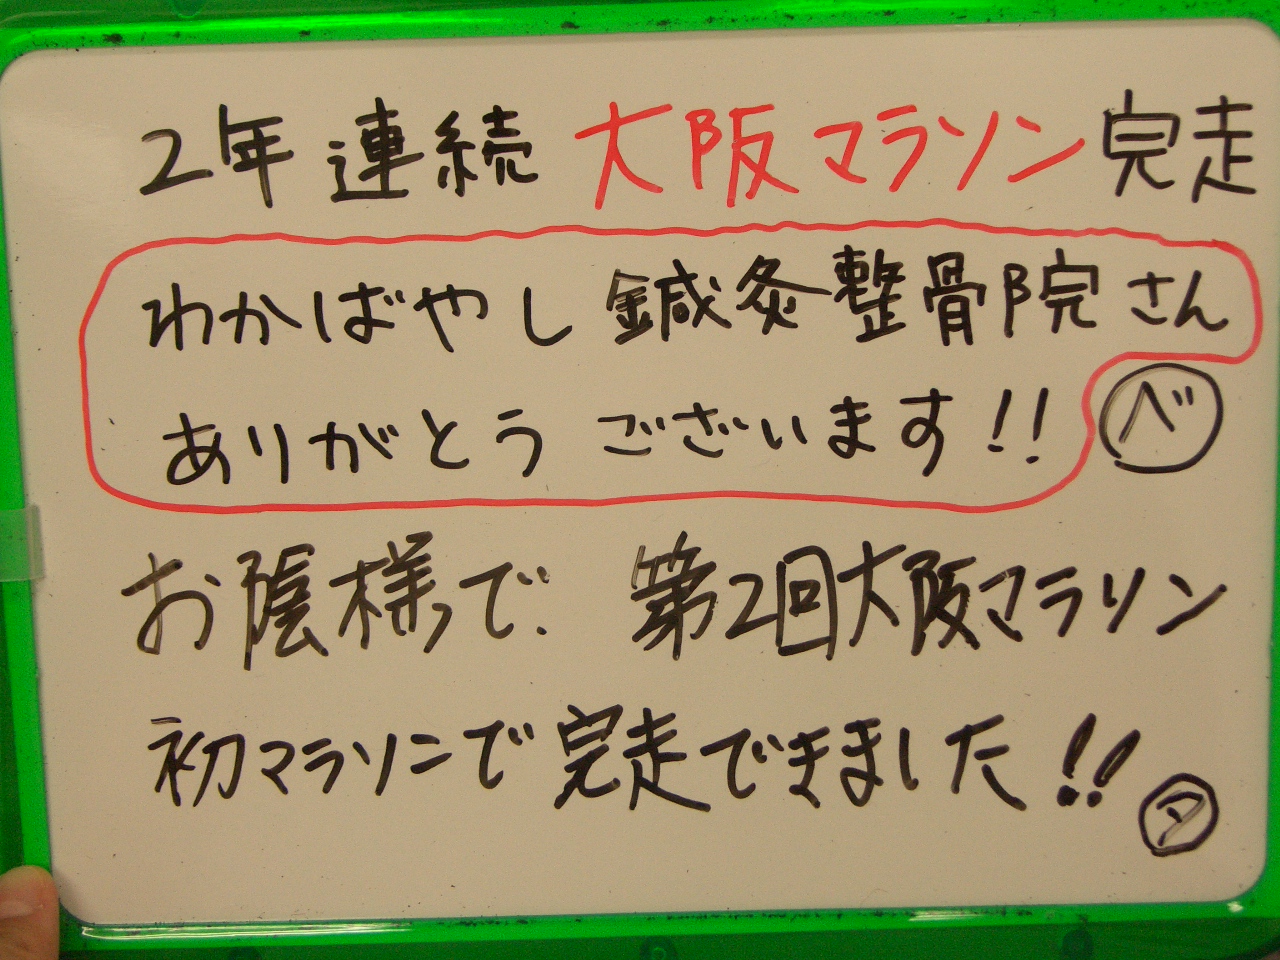 2年連続 大阪マラソン完走
わかばやし鍼灸整骨院さん
ありがとうございます!!
ベ
お陰様で、第2回大阪マラソン
初マラソンで完走できました!!
マ